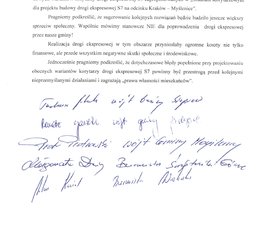 dla projektu budowy drogi ekspresowej S7 na odcinku Kraków – Myślenice".
Pragniemy podkreślić, że sugerowanie kolejnych rozwiązań będzie budziło jeszcze większy
sprzeciw społeczny. Wspólnie mówimy stanowcze NIE dla poprowadzenia drogi ekspresowej
przez nasze gminy!
Realizacja drogi ekspresowej w tym obszarze przyniosłaby ogromne koszty nie tylko
finansowe, ale przede wszystkim negatywne skutki społeczne i środowiskowe.
Jednocześnie pragniemy podkreślić, że dotychczasowe błędy popełnione przy projektowaniu
obecnych wariantów korytarzy drogi ekspresowej S7 powinny być przestrogą przed kolejnymi
nieprzemyślanymi działaniami i zagrażają „prawu własności mieszkańców".
Wójt Gminy
wójt gminy
Wójt Gminy
Małgorzata Burmistrz Świątniki Górne
Burmistrz